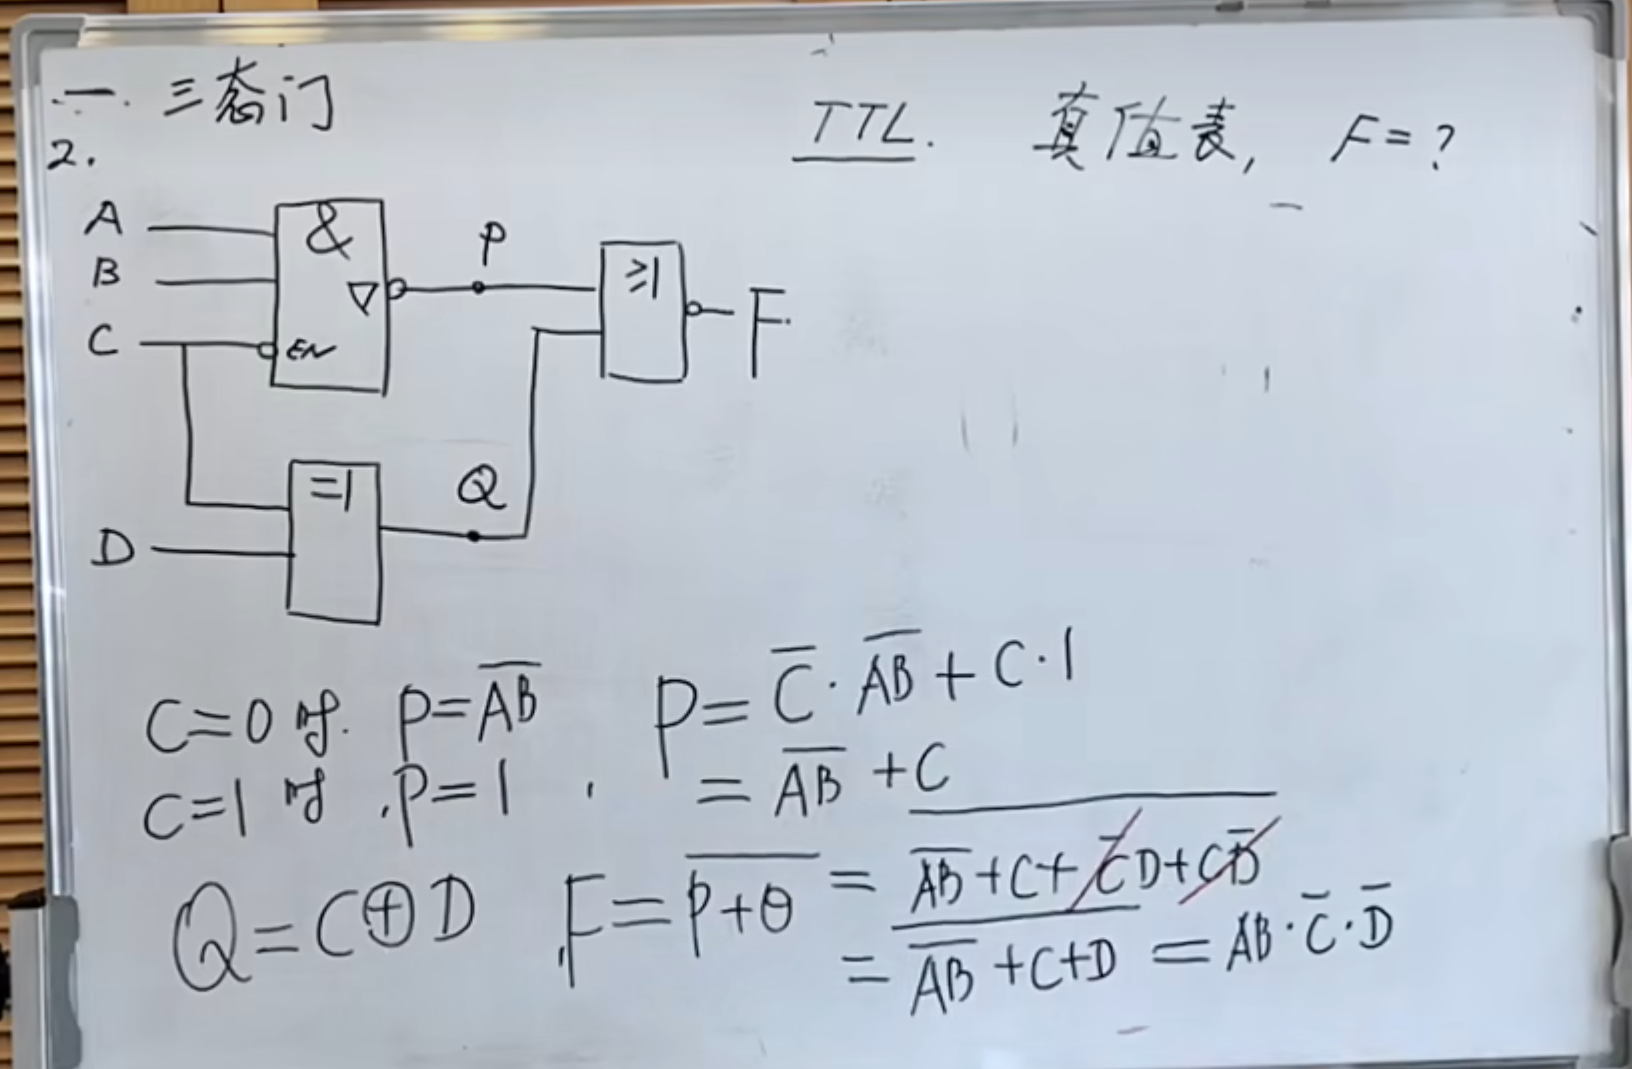 一. 三态门
TTL. 真值表, F=?
2.
A
B
C
D
&
▽
EN
P
≥1
F.
=1
Q
C=0 时. P=\overline{AB}
C=1 时, P=1,
P=\overline{C}·\overline{AB}+C·1
=\overline{AB}+C
Q=C⊕D
F=\overline{P+Q}=\overline{\overline{AB}+C+\overline{C}D+C\overline{D}}
=\overline{\overline{AB}+C+D}=AB·\overline{C}·\overline{D}